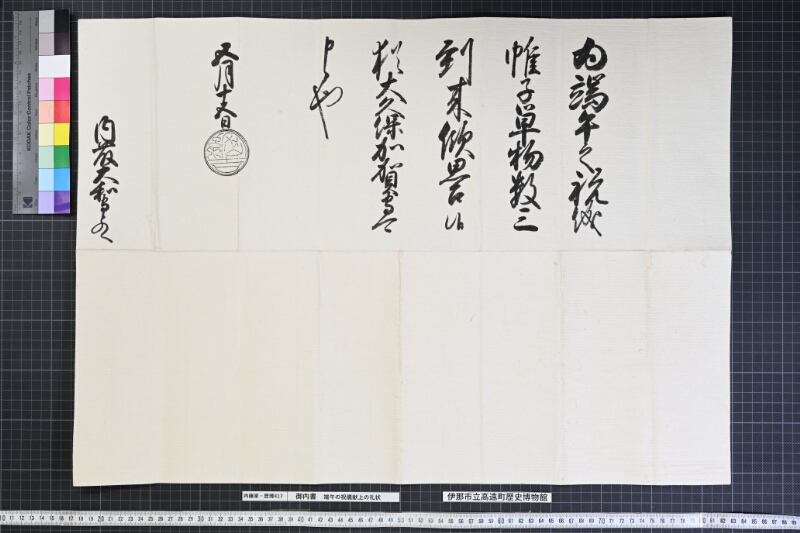 為端午之祝儀
帷子単物数三
到来歓思召候
猶大久保加賀守可
申也
五月 日
内藤大和守とのへ
内藤家－歴博417 御内書 端午の祝儀献上の礼状
伊那市立高遠町歴史博物館
KODAK Color Control Patches